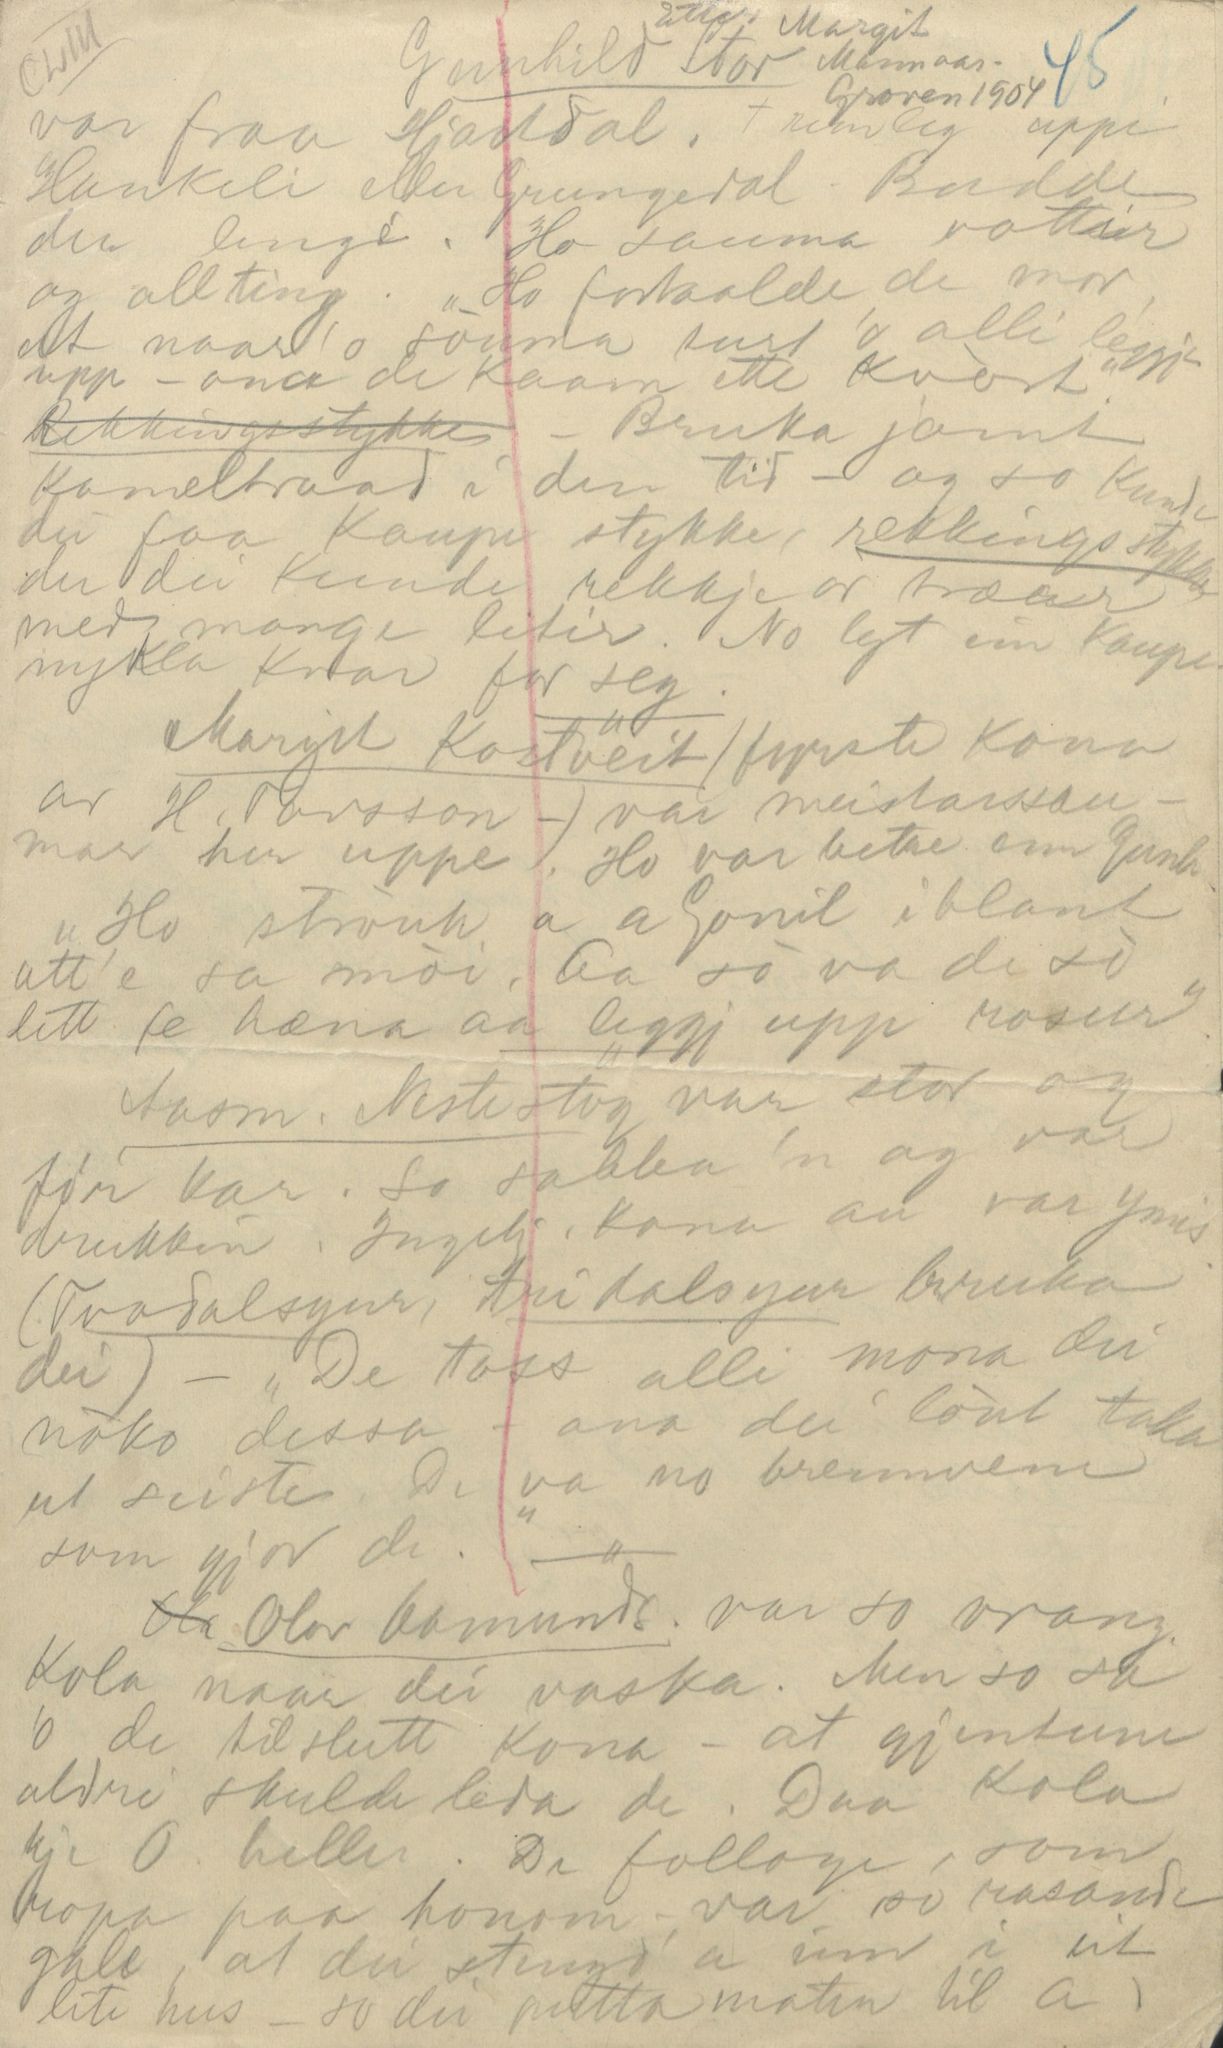 Etter Margit
Gunhild Stor Mannaar-
45
Groven 1904
var fraa Hjartdal. + rimleg uppi
Haukeli eller Grungedal. Budde
der lengi. Ho sauma vottar
og allting. "Ho fortaalde de mor,
at naar 'o sòuma surt 'o alli leggje
upp - ana de kaam ette kvort"
Rekkingsstykke - Bruka jamt
kameltraad i den tid - og so kunde
dei faa kaupe stykke, rekkingsstykke
der dei kunde rekkje or træer
med mange letir. No lyt ein kaupe
nykla kvar for seg.
Margit Kostveit (fyrste kona
av H. Torsson -) var meistarsau-
mar her uppe. Ho var betre enn Gunh.
"Ho stròuk a a Gonil iblant
att 'e sa mòi. Aa sò va de sò
lett fe hæna aa leggj upp rosur"
Aasm. Nestestog var stor og
fór kar. So sabba 'n og var
drukkin. Ingebj. kona au var ymis
(Tvodalsyur, tridalsyur bruka
dei) - "De tass alli mona dei
nòko dessa - ana dei lòut taka
ut seiste. De va no brennvene
som gjor de."
Olav Aamunds. var so vrang.
Kola naar dei vaska. Men so sa
'o de tilslutt kona - at gjentune
aldri skulde leda de. Daa kola
kje O. heller. De folloge, som
ropa paa honom - var so rasande
gale, at dei stengd' a inn i eit
lite hus - so dei putta maten til a,